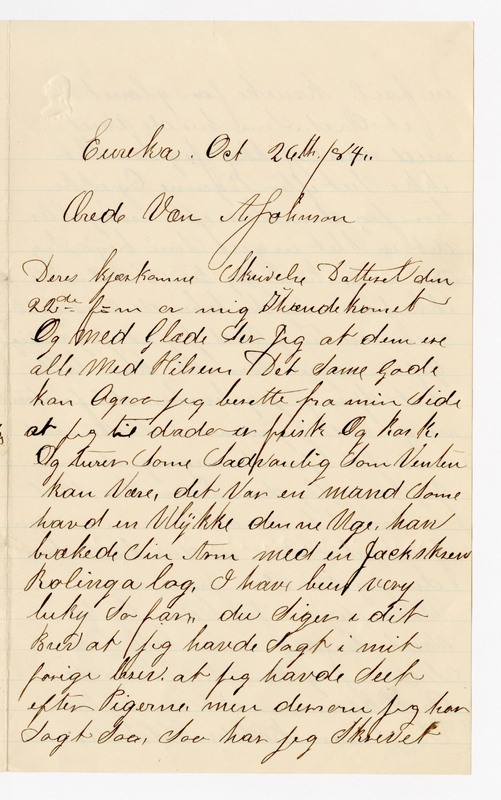 Eureka. Oct 26th./84..
Ærede Ven A Johnson
Deres kjærkomne Skrivelse Datteret den
22de f=m er mig Ihændekomet
Og med Glæde Ser Jeg at dem ere
alle Med Hilsen, Det Same Gode
kan Ogsaa jeg berette fra min Side
at jeg til dado er frisk Og kask.
Og turer Some Sadvanlig Som Venten
kan Være, det Var en mand Some
havd en Ulÿkke denne Uge, han
brækede Sin Arm med en Jackskren
Rolinga log, I have been very
luky So farr, du Siger i dit
Brev at jeg havde Sagt i mit
forige brev. at jeg havde Seet
efter Pigerne, men dersom jeg har
Sagt Saa, Saa har jeg Skrevet